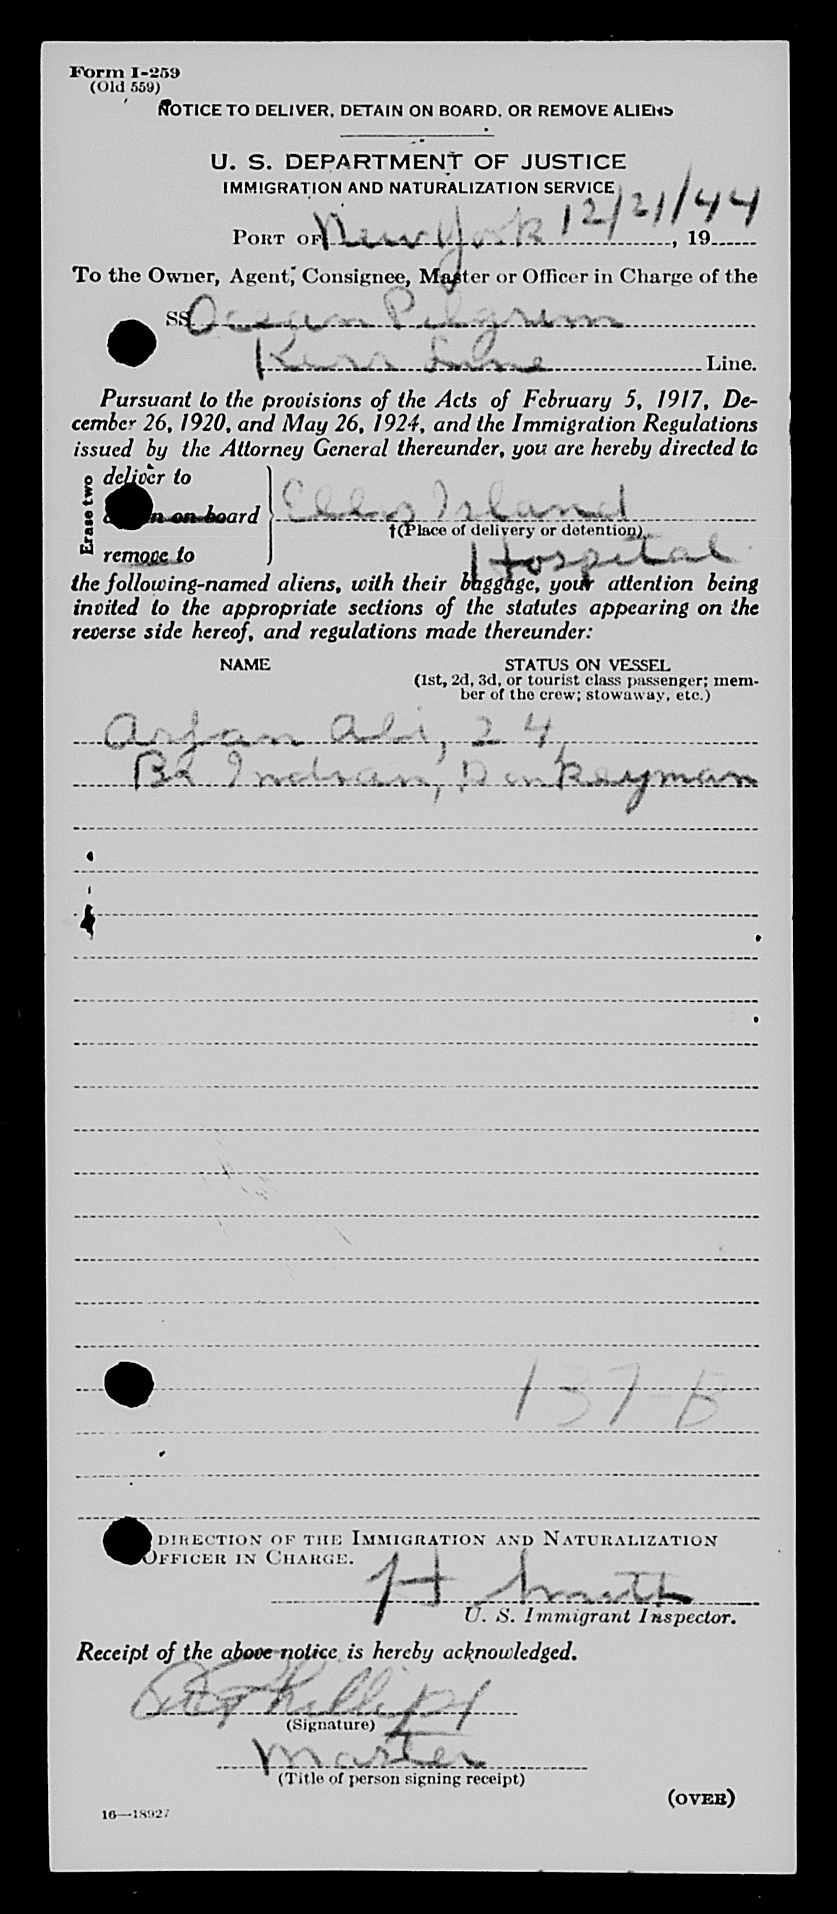 Form I-259
(Old 559)
NOTICE TO DELIVER, DETAIN ON BOARD, OR REMOVE ALIENS
U. S. DEPARTMENT OF JUSTICE
IMMIGRATION AND NATURALIZATION SERVICE
PORT OF New York 12/21/44, 19
To the Owner, Agent, Consignee, Master or Officer in Charge of the
SS Ocean Pilgrim
Kerr Line Line.
Pursuant to the provisions of the Acts of February 5, 1917, De-
cember 26, 1920, and May 26, 1924, and the Immigration Regulations
issued by the Attorney General thereunder, you are hereby directed to
Erase two
deliver to
on board
remove to
Ellis Island
†(Place of delivery or detention)
Hospital
the following-named aliens, with their baggage, your attention being
invited to the appropriate sections of the statutes appearing on the
reverse side hereof, and regulations made thereunder:
NAME STATUS ON VESSEL
(1st, 2d, 3d, or tourist class passenger; mem-
ber of the crew; stowaway, etc.)
Arfan Ali, 24,
Br Indian, Donkeyman
137-B
DIRECTION OF THE IMMIGRATION AND NATURALIZATION
OFFICER IN CHARGE.
H Smith
U. S. Immigrant Inspector.
Receipt of the above notice is hereby acknowledged.
Phillips
(Signature)
Master
(Title of person signing receipt)
(OVER)
16—18927